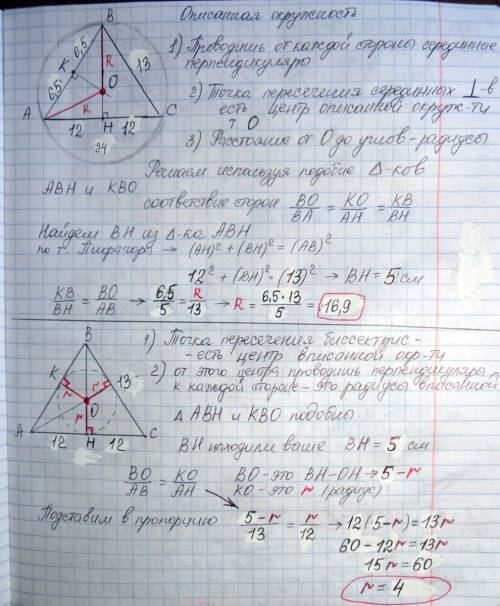 Описанная окружность
1) Проводишь от каждой стороны серединные
перпендикуляры
2) Точка пересечения серединных ⊥-в
есть центр описанной окруж-ти
т. О
3) Расстояние от О до углов - радиусы
B
6,5
K
6,5
R
13
O
R
A
H
C
12
12
24
Решаем используя подобие Δ-ков
ABH и KBO
соответствие сторон BO/BA = KO/AH = KB/BH
Найдем BH из Δ-ка ABH
по т. Пифагора → (AH)² + (BH)² = (AB)²
12² + (BH)² = (13)² → BH = 5 см
KB/BH = BO/AB → 6,5/5 = R/13 → R = 6,5·13/5 = 16,9
1) Точка пересечения биссектрис -
- есть центр вписанной окр-ти
2) от этого центра проводишь перпендикуляры
к каждой стороне - это радиусы вписанной
B
K
13
r
r
O
r
A
H
C
12
12
Δ ABH и KBO подобны
BH находили выше BH = 5 см
BO/AB = KO/AH
BO - это BH-OH → 5-r
KO - это r (радиус)
Подставим в пропорцию 5-r/13 = r/12 → 12(5-r) = 13r
60-12r = 13r
15r = 60
r = 4